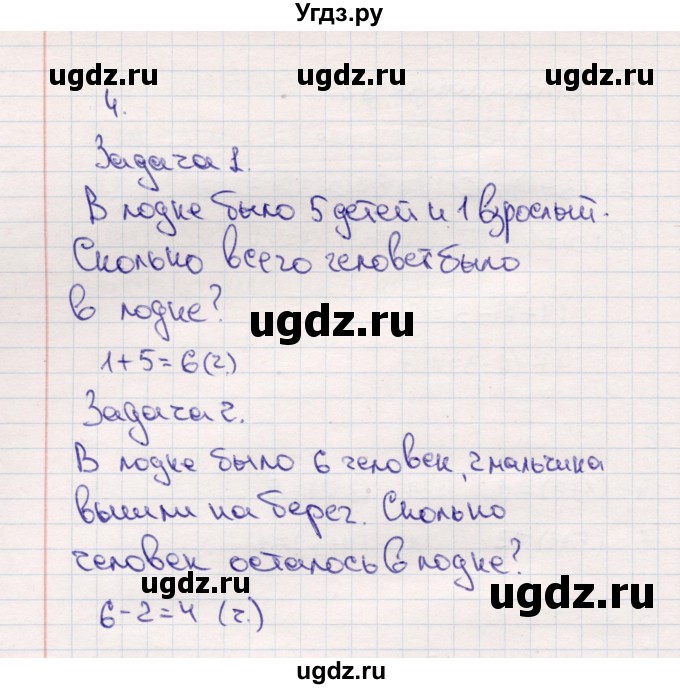 Угдз.ру
ugdz.ru ugdz.ru
4.
Задача 1.
В лодке было 5 детей и 1 взрослый.
Сколько всего человек было
в лодке?
ugdz.ru
1+5=6(ч.)
Задача 2.
В лодке было 6 человек, 2 мальчика
вышли на берег. Сколько
человек осталось в лодке?
ugdz.ru ugdz.ru
6-2=4 (ч.)
ugdz.ru